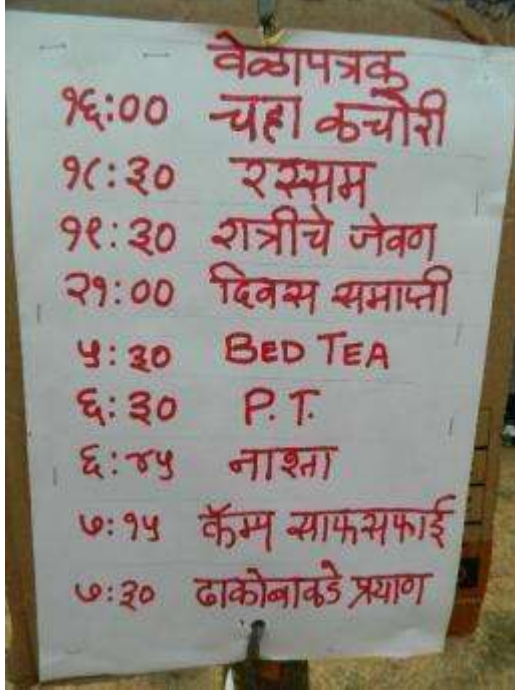 वेळापत्रक
१६:०० चहा कचोरी
१८:३० रस्सम
१९:३० रात्रीचे जेवण
२१:०० दिवस समाप्ती
५:३० BED TEA
६:३० P.T.
६:४५ नाश्ता
७:१५ कॅम्प साफसफाई
७:३० ढाकोबाकडे प्रयाण